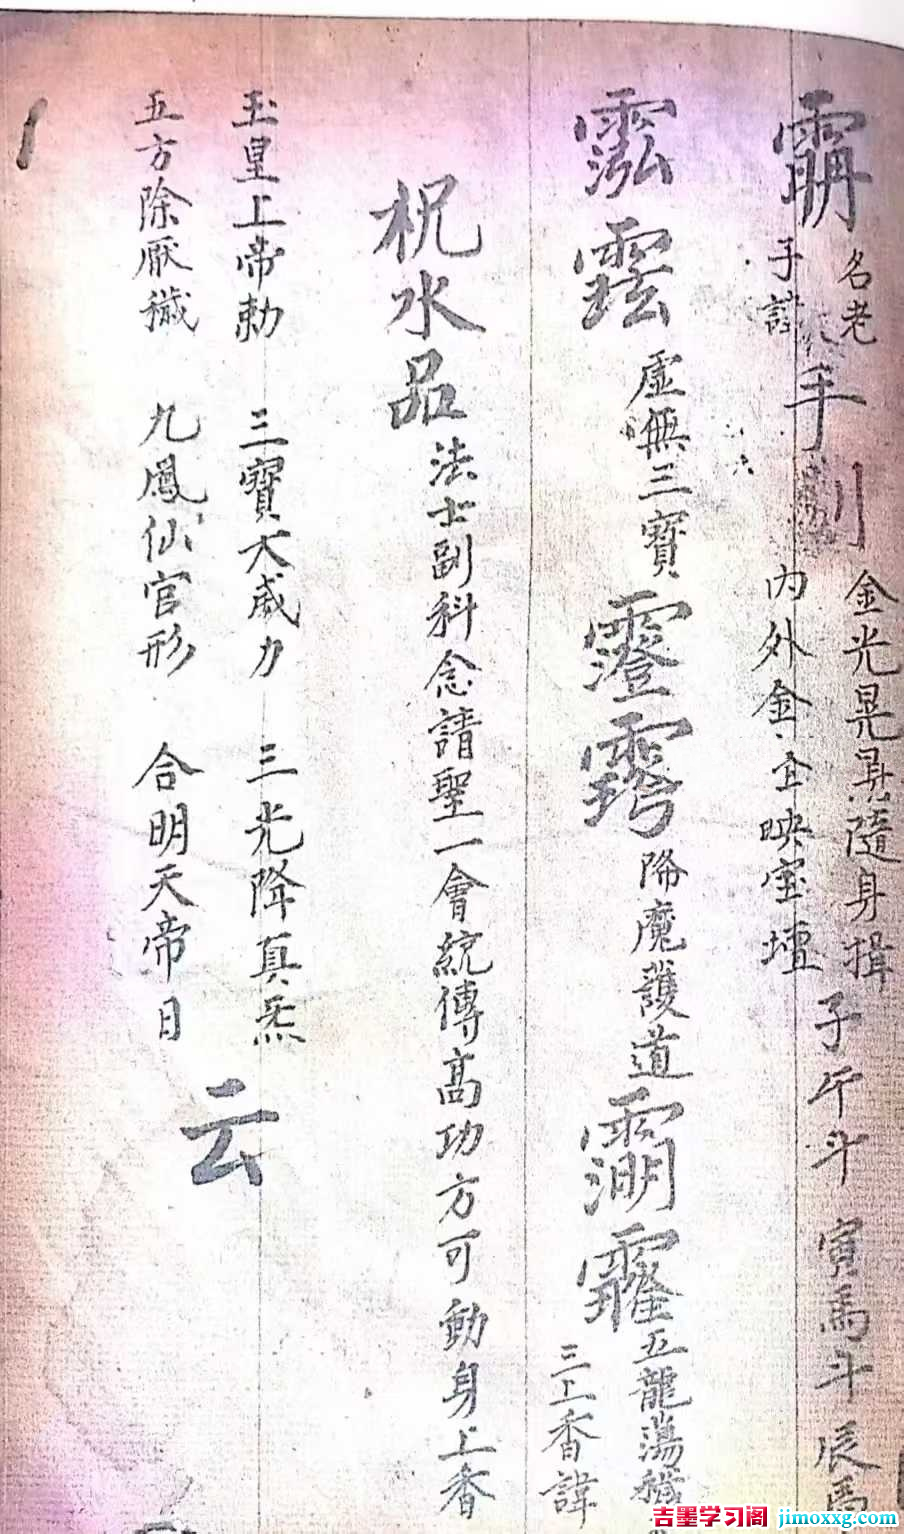 名老
子諱
手
金光晃晃隨身揖
內外金仝映室壇
子午斗 寅馬斗 辰馬
虛無三寶
降魔護道
五龍蕩穢
三上香諱
祝水品
法士副科念請聖一會統傳高功方可動身上香
玉皇上帝勅 三寶大威力 三光降真炁
五方除厭穢 九鳳仙官形 合明天帝日
云
吉墨学习阁 jimoxxg.com